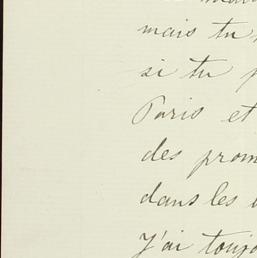 mais tu
si tu
Paris et
des prom
dans les
J'ai toujo